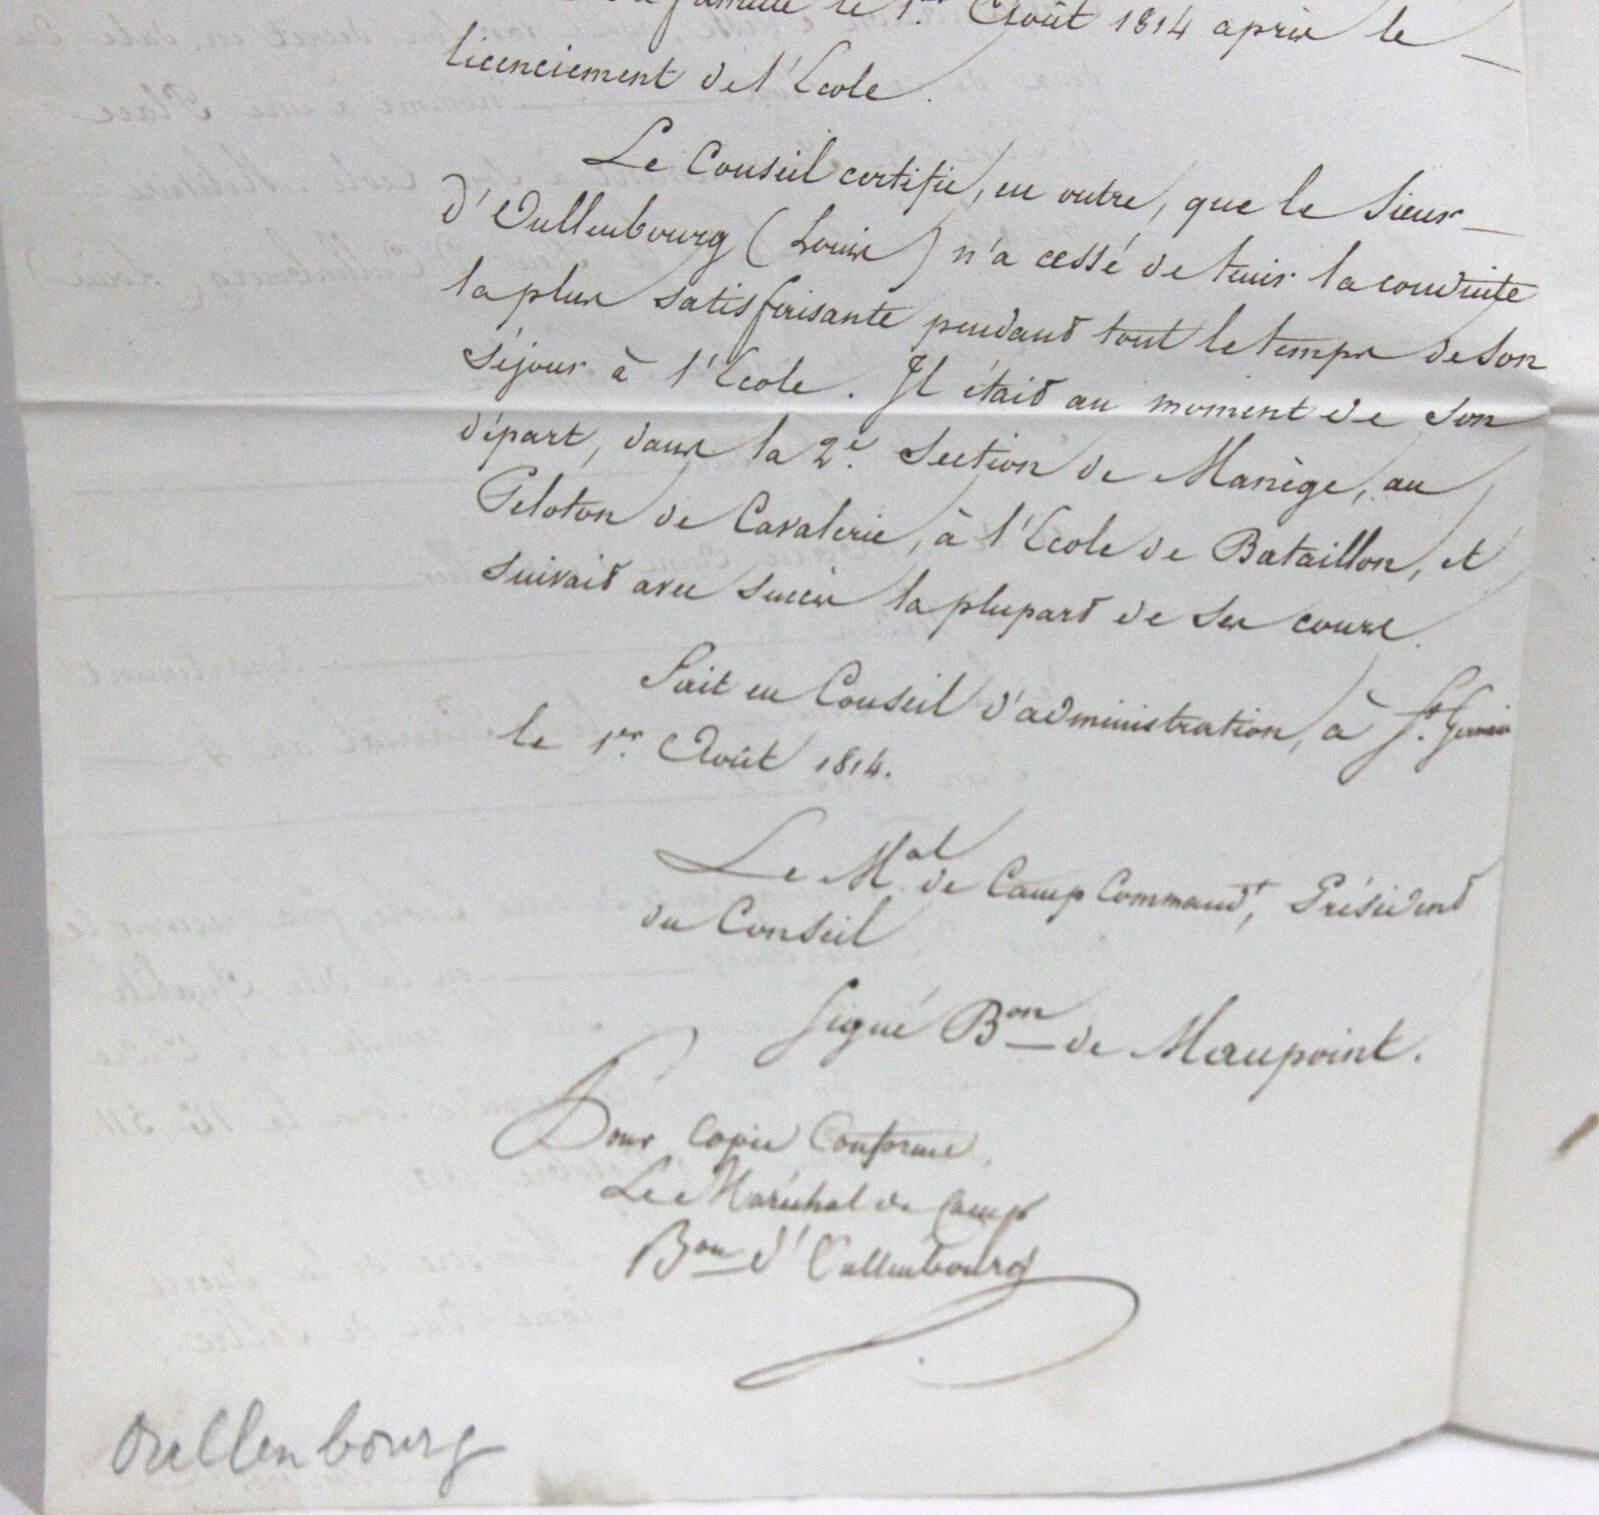 famille le 1.er Août 1814 après le
licenciement de l'Ecole.
Le Conseil certifie, en outre, que le Sieur
D'Oullenbourg (Louis) n'a cessé de tenir la conduite
la plus satisfaisante pendant tout le temps de son
séjour à l'Ecole. Il était au moment de son
départ, dans la 2.e Section de Manège, au
Peloton de Cavalerie, à l'Ecole de Bataillon, et
suivait avec succès la plupart de ses cours.
Fait en Conseil d'administration, à St. Germain
le 1.er Août 1814.
Le M.al de Camp Command.t, Président
du Conseil
Signé B.on de Maupoint.
Pour Copie Conforme
Le Maréchal de Camp
B.on d'Oullenbourg
Oullenbourg